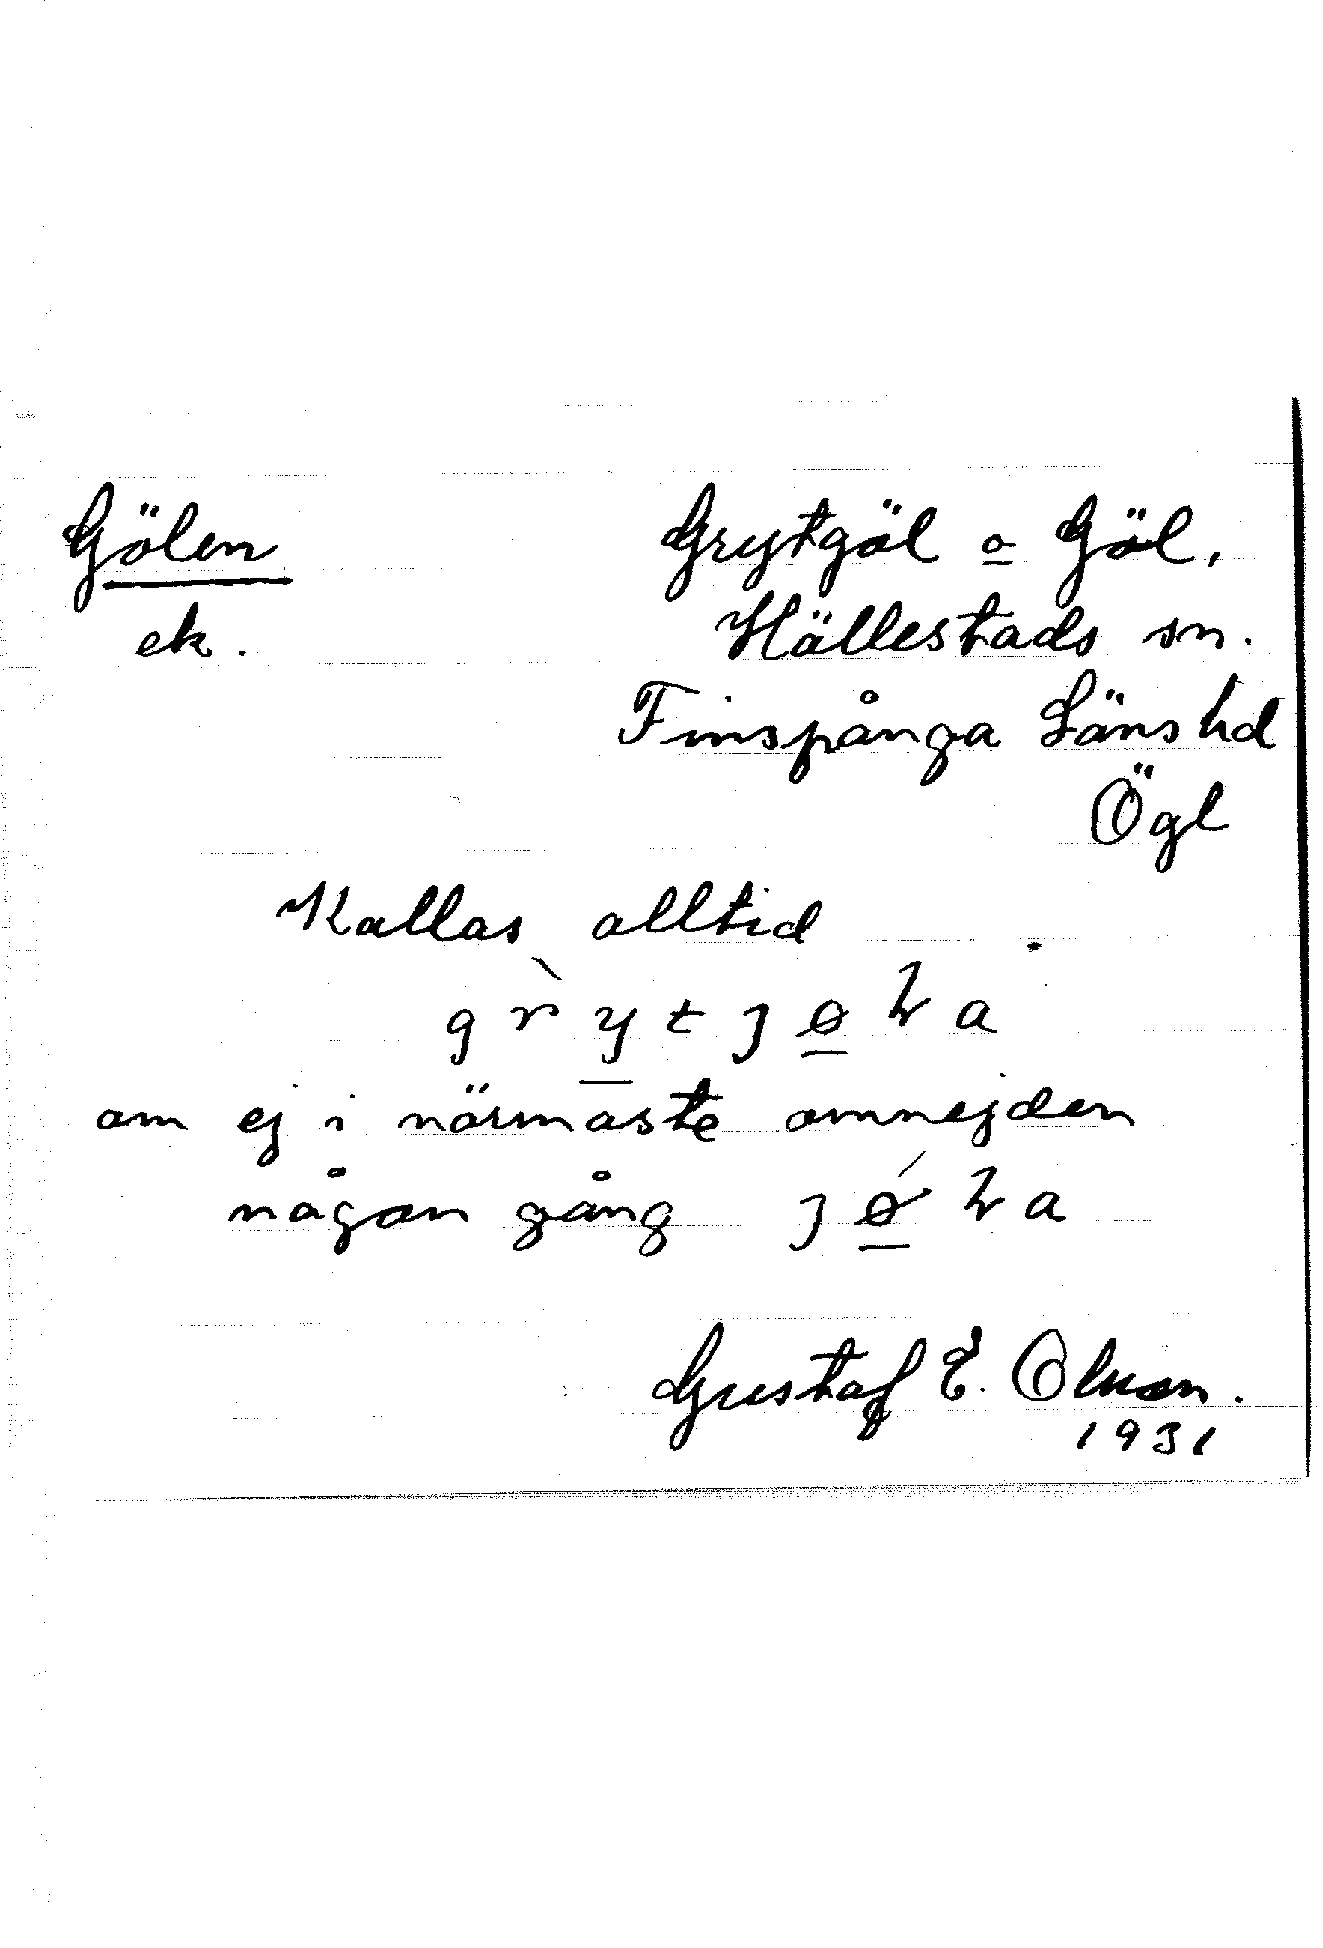 Gölen
ek.
Grytgöl o Göl,
Hällestads sn.
Finspånga Läns hd
Ögl
Kallas alltid
gr̀y̲tjø̲ɽa
om ej i närmaste omnejden
någon gång jǿ̲ɽa
Gustaf E. Olsson.
1931